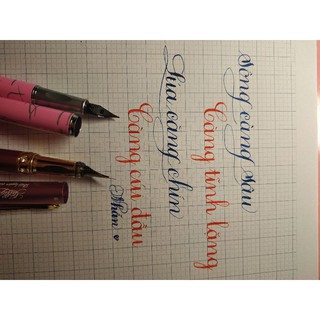 Sông càng sâu
Càng tĩnh lặng
Lúa càng chín
Càng cúi đầu
Nhàn ♥